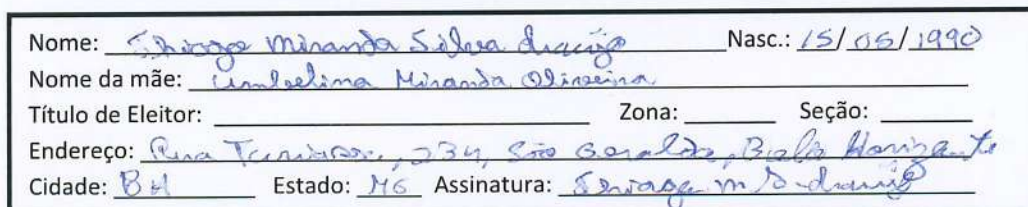 Nome: Thiago Miranda Silva Araujo Nasc.: 15/05/1990
Nome da mãe: Umbelina Miranda Oliveira
Título de Eleitor: Zona: Seção:
Endereço: Rua 234, São Geraldo, Belo Horizonte
Cidade: BH Estado: MG Assinatura: Thiago M S Araujo